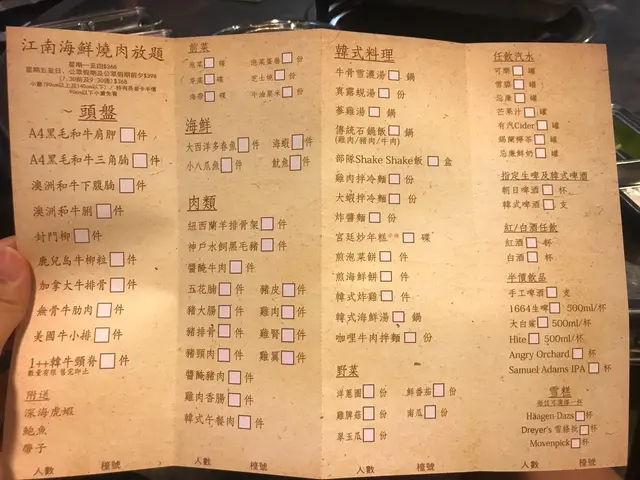 江南海鮮燒肉放題
星期一至四$368
星期五至日、公眾假期及公眾假期前夕$398
~ 頭盤
A4黑毛和牛肩胛 件
A4黑毛和牛三角腩 件
澳洲和牛下腹腩 件
澳洲和牛脷 件
封門柳 件
鹿兒島牛柳粒 件
加拿大牛排骨 件
無骨牛肋肉 件
美國牛小排 件
1++韓牛頸脊 件
數量有限 售完即止
附送
深海虎蝦
鮑魚
帶子
人數 檯號
前菜
泡菜 碟
泡菜蛋卷 份
青瓜 碟
芝士燒 份
海帶 碟
牛油粟米 份
海鮮
大西洋多春魚 件
海蝦 件
小八瓜魚 件
魷魚 件
肉類
紐西蘭羊排骨架 件
神戶水飼黑毛豬 件
醬醃牛肉 件
五花腩 件
豬皮 件
豬大腸 件
雞肉 件
豬排骨 件
雞腎 件
豬頸肉 件
雞翼 件
醬醃豬肉 件
雞肉香腸 件
韓式午餐肉 件
人數 檯號
韓式料理
牛骨雪濃湯 鍋
真露蜆湯 份
蔘雞湯 鍋
傳統石鍋飯 鍋
(雞肉/豬肉/牛肉)
部隊Shake Shake飯 盒
雞肉拌冷麵 份
大蝦拌冷麵 份
炸醬麵 份
宮廷炒年糕 碟
煎泡菜餅 件
煎海鮮餅 件
韓式炸雞 件
韓式海鮮湯 鍋
咖哩牛肉拌麵 份
野菜
洋蔥圈 份
鮮番茄 份
雞脾菇 份
南瓜 份
翠玉瓜 份
人數 檯號
任飲汽水
可樂 罐
雪碧 罐
忌廉 罐
芒果汁 罐
有汽Cider 罐
錫蘭檸茶 罐
忌廉鮮奶 罐
指定生啤及韓式啤酒
朝日啤酒 杯
韓式啤酒 支
紅/白酒任飲
紅酒 杯
白酒 杯
半價飲品
手工啤酒 支
1664生啤 500ml/杯
大白鯊 500ml/杯
Hite 500ml/杯
Angry Orchard 杯
Samuel Adams IPA 杯
雪糕
每位可選擇一杯
Häagen-Dazs 杯
Dreyer's 雪糕批 杯
Movenpick 杯
人數 檯號